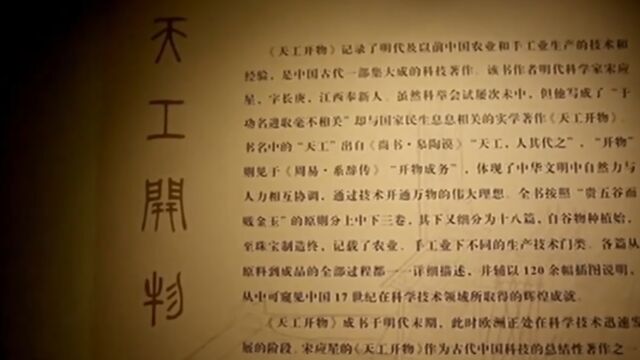 天工開物
《天工开物》记录了明代及以前中国农业和手工业生产的技术和
经验，是中国古代一部集大成的科技著作。该书作者明代科学家宋应
星，字长庚，江西奉新人。虽然科举会试屡次未中，但他写成了“于
功名进取毫不相关”却与国家民生息息相关的实学著作《天工开物》。
书名中的“天工”出自《尚书·皋陶谟》“天工，人其代之”，“开物”
则见于《周易·系辞传》“开物成务”，体现了中华文明中自然力与
人力相互协调，通过技术开通万物的伟大理想。全书按照“贵五谷而
贱金玉”的原则分上中下三卷，其下又细分为十八篇，自谷物种植始，
至珠宝制造终，记载了农业、手工业下不同的生产技术门类。各篇从
原料到成品的全部过程都一一详细描述，并辅以120余幅插图说明，
从中可窥见中国17世纪在科学技术领域所取得的辉煌成就。
《天工开物》成书于明代末期，此时欧洲正处在科学技术迅速发
展的阶段。宋应星的《天工开物》作为古代中国科技的总结性著作之一